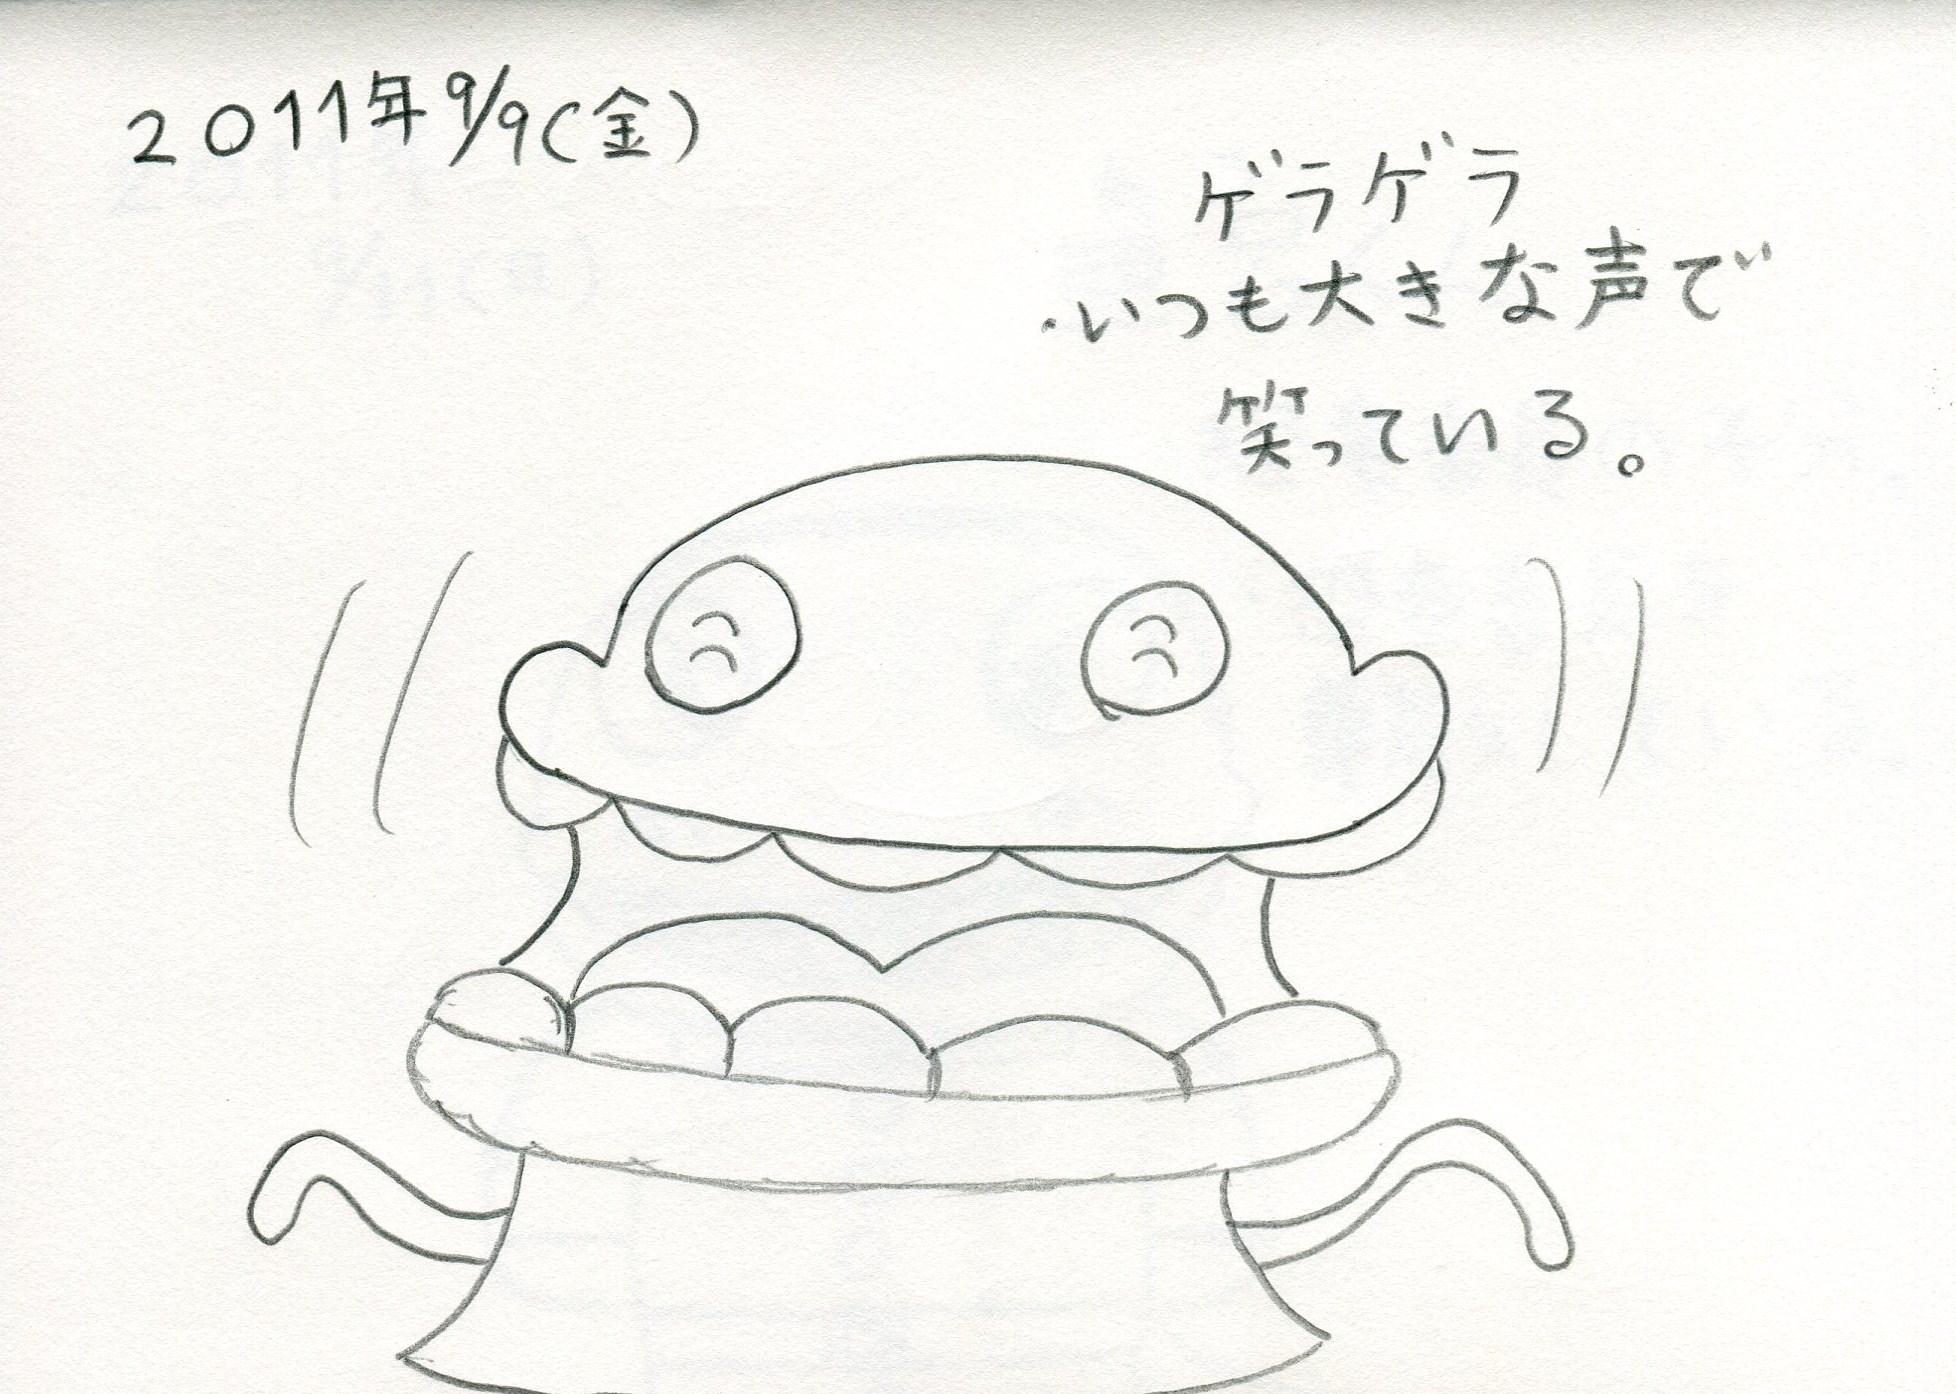 2011年9/9(金)
ゲラゲラ
・いつも大きな声で
笑っている。